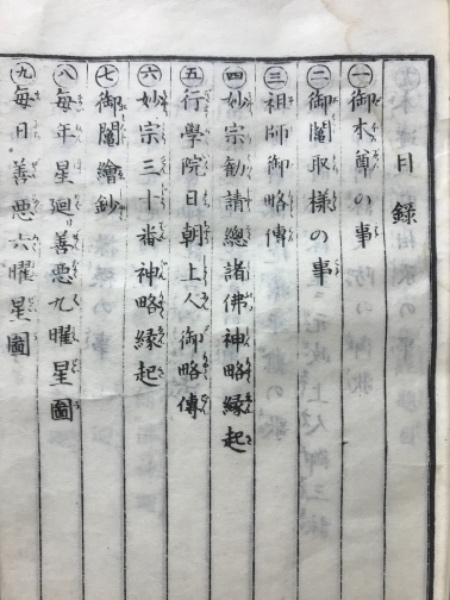 目録
一 御本尊の事
二 御鬮取様の事
三 祖師御略傳
四 妙宗勧請總諸佛神略縁起
五 行學院日朝上人御略傳
六 妙宗三十番神略縁起
七 御鬮繪鈔
八 毎年星廻り善悪九曜星圖
九 毎日善悪六曜星圖